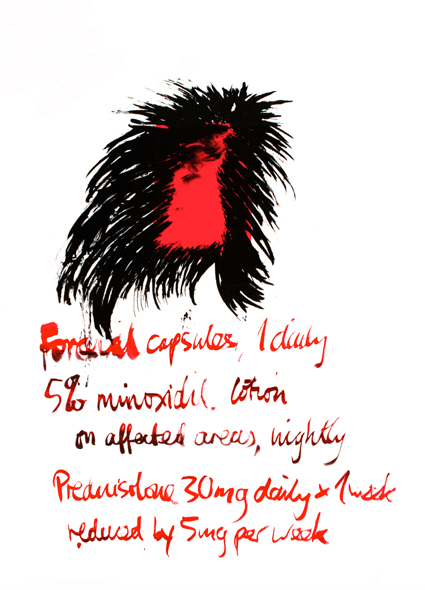 Forceval capsules, 1 daily
5% minoxidil. lotion
on affected areas, nightly
Prednisolone 30mg daily x 1 week
reduced by 5mg per week